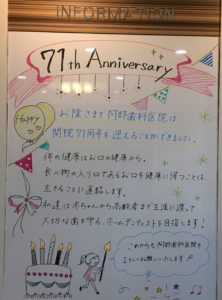 INFORMATION
71th Anniversary
Happy
お陰さまで阿部歯科医院は
開院71周年を迎えることができました。
体の健康はお口の健康から。
食べ物の入り口であるお口を健康に保つことは、
生きることに直結します。
私達は赤ちゃんから高齢者まで生涯に渡って
大切な歯を守る、ホームデンティストを目指します!
これからも阿部歯科医院を
よろしくお願いいたします